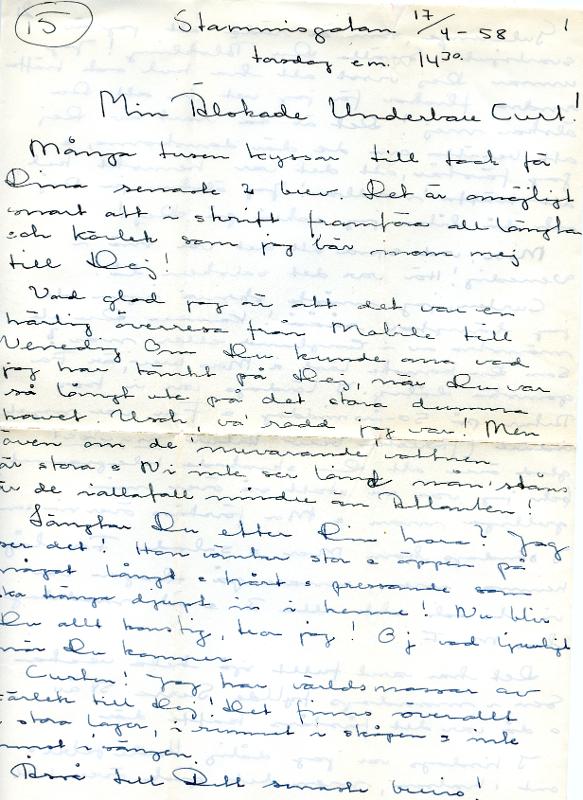 15
Stammisgatan 17/4-58 1
torsdag em. 14.30
Min Älskade Underbare Curt!
Många tusen kyssar till tack för
Dina senaste 2 brev. Det är omöjligt
snart att i skrift framföra all längtan
och kärlek som jag bär inom mej
till Dej!
Vad glad jag är att det var en
härlig överresa från Mobile till
Venedig. Om Du kunde ana vad
jag har tänkt på Dej, när Du var
så långt ute på det stora dumma
havet. Usch, va' rädd jag var! Men
även om de nuvarande vattnen
är stora o Ni inte ser land nån stans
är de iallafall mindre än Atlanten!
Längtar Du efter Din hora? Jag
ser det! Hon väntar stor o öppen på
något långt o hårt o pressande som
ska tränga djupt in i henne! Nu blir
Du allt konstig, tror jag! Oj vad ljuvligt
när Du kommer
Curten! Jag har världsmassor av
kärlek till Dej! Det finns överallt
i stora lager, i rummet i skåpen o inte
minst i sängen.
Åsså till Ditt senaste brev!